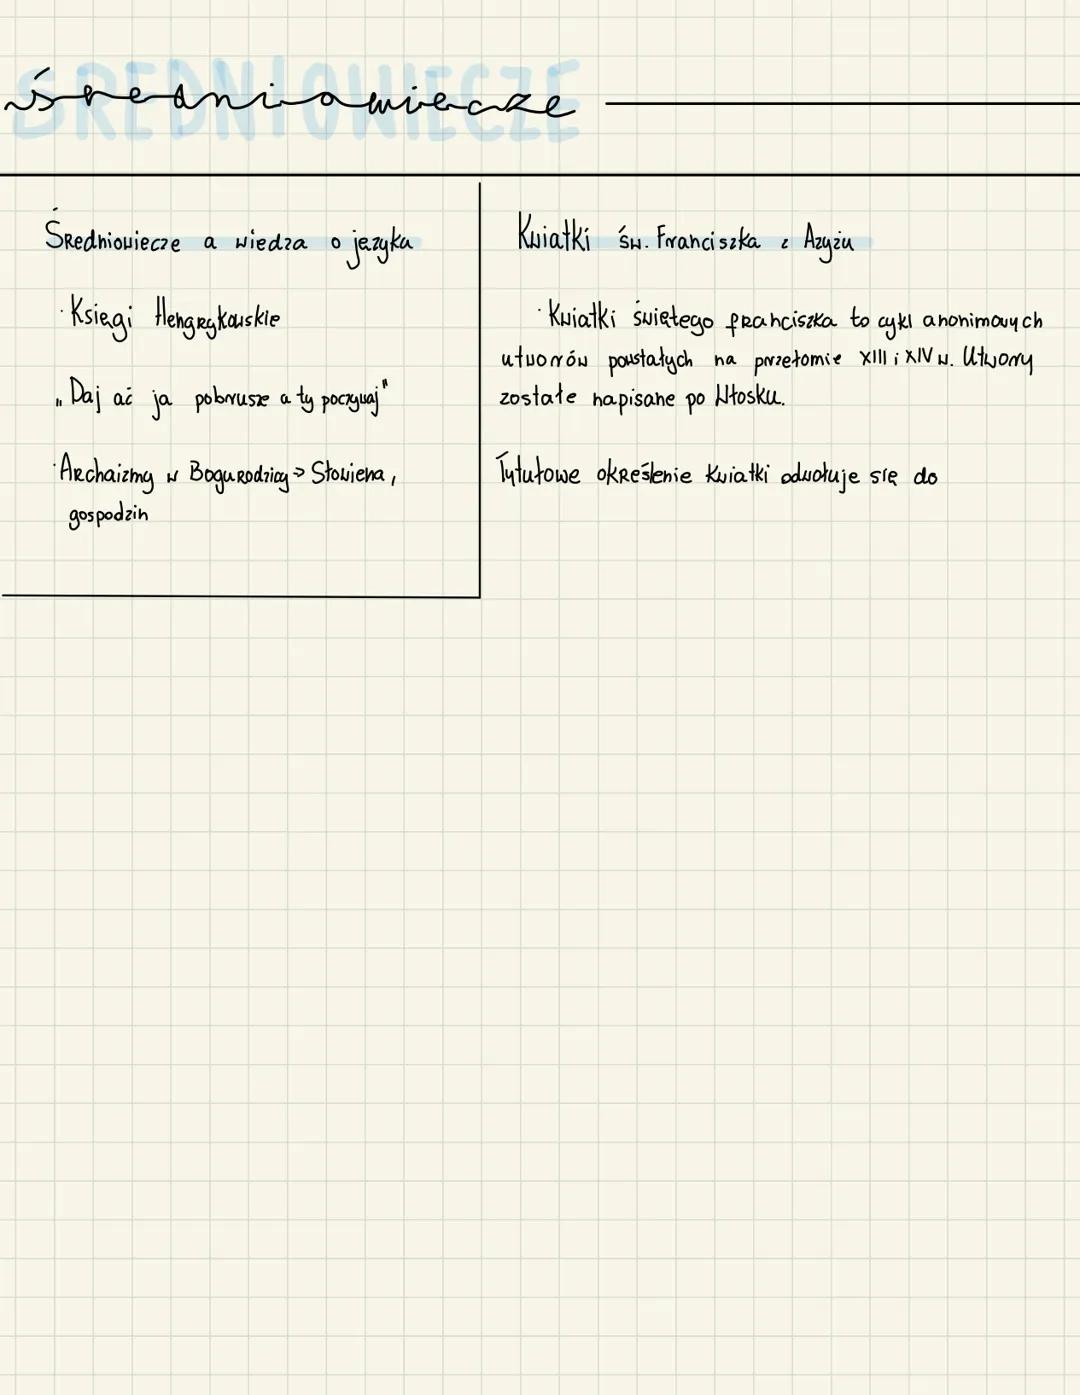 ŚREDNIOWIECZE
średniowiecze
Średniowiecze a wiedza o języka
· Księgi Hengrykowskie
„Daj ać ja pobrusze a ty poczywaj"
· Archaizmy w Bogurodzicy -> Słowiena,
gospodzin
Kwiatki św. Franciszka z Azyżu
· Kwiatki świętego franciszka to cykl anonimowych
utworów powstałych na przełomie XIII i XIV w. Utwory
zostałe napisane po Włosku.
Tytułowe określenie kwiatki odwołuje się do